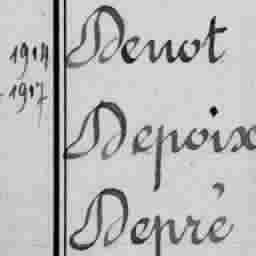 1914 Denot
1917
Depoix
Depré